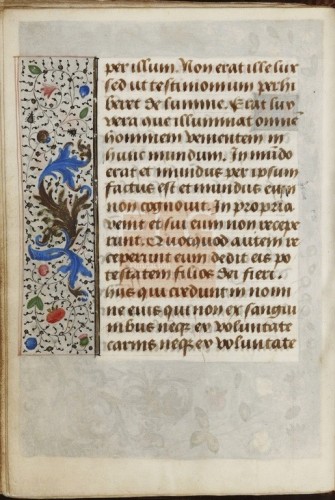 per illum. Non erat ille lux
sed ut testimonium perhi
beret de lumine. Erat lux
vera que illuminat omnē
hominem venientem in
hunc mundum. In mūdo
erat et mundus per ipsum
factus est et mundus eum
non cognouit. In propria
venit et sui eum non recepe
runt. Quotquod autem re
ceperunt eum dedit eis po
testatem filios dei fieri.
hiis qui credunt in nomi
ne eius qui non ex sangui
nibus neqz ex voluntate
carnis neqz ex voluntate